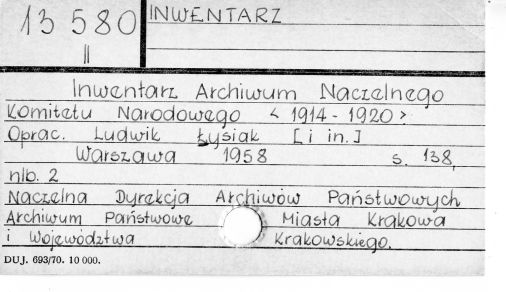 13 580
II
INWENTARZ
Inwentarz Archiwum Naczelnego
Komitetu Narodowego <1914-1920>
Oprac. Ludwik Łysiak [i in.]
Warszawa 1958 s. 138,
nlb. 2
Naczelna Dyrekcja Archiwów Państwowych
Archiwum Państwowe Miasta Krakowa
i Województwa Krakowskiego.
DUJ. 693/70. 10 000.